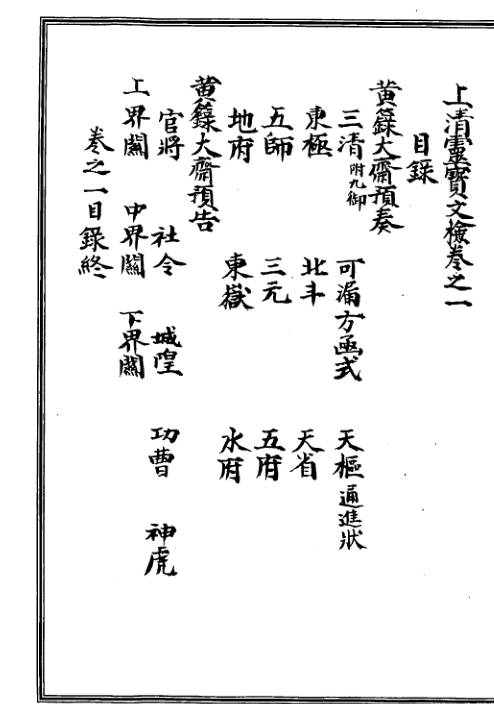 上清靈寳文檢卷之一
目錄
黄籙大齋預奏
三清附九御 可漏方函式 天樞通進狀
東極 北斗 天省
五師 三元 五府
地府 東嶽 水府
黄籙大齋預告
官將 社令 城隍 功曹 神虎
上界關 中界關 下界關
卷之一目錄終